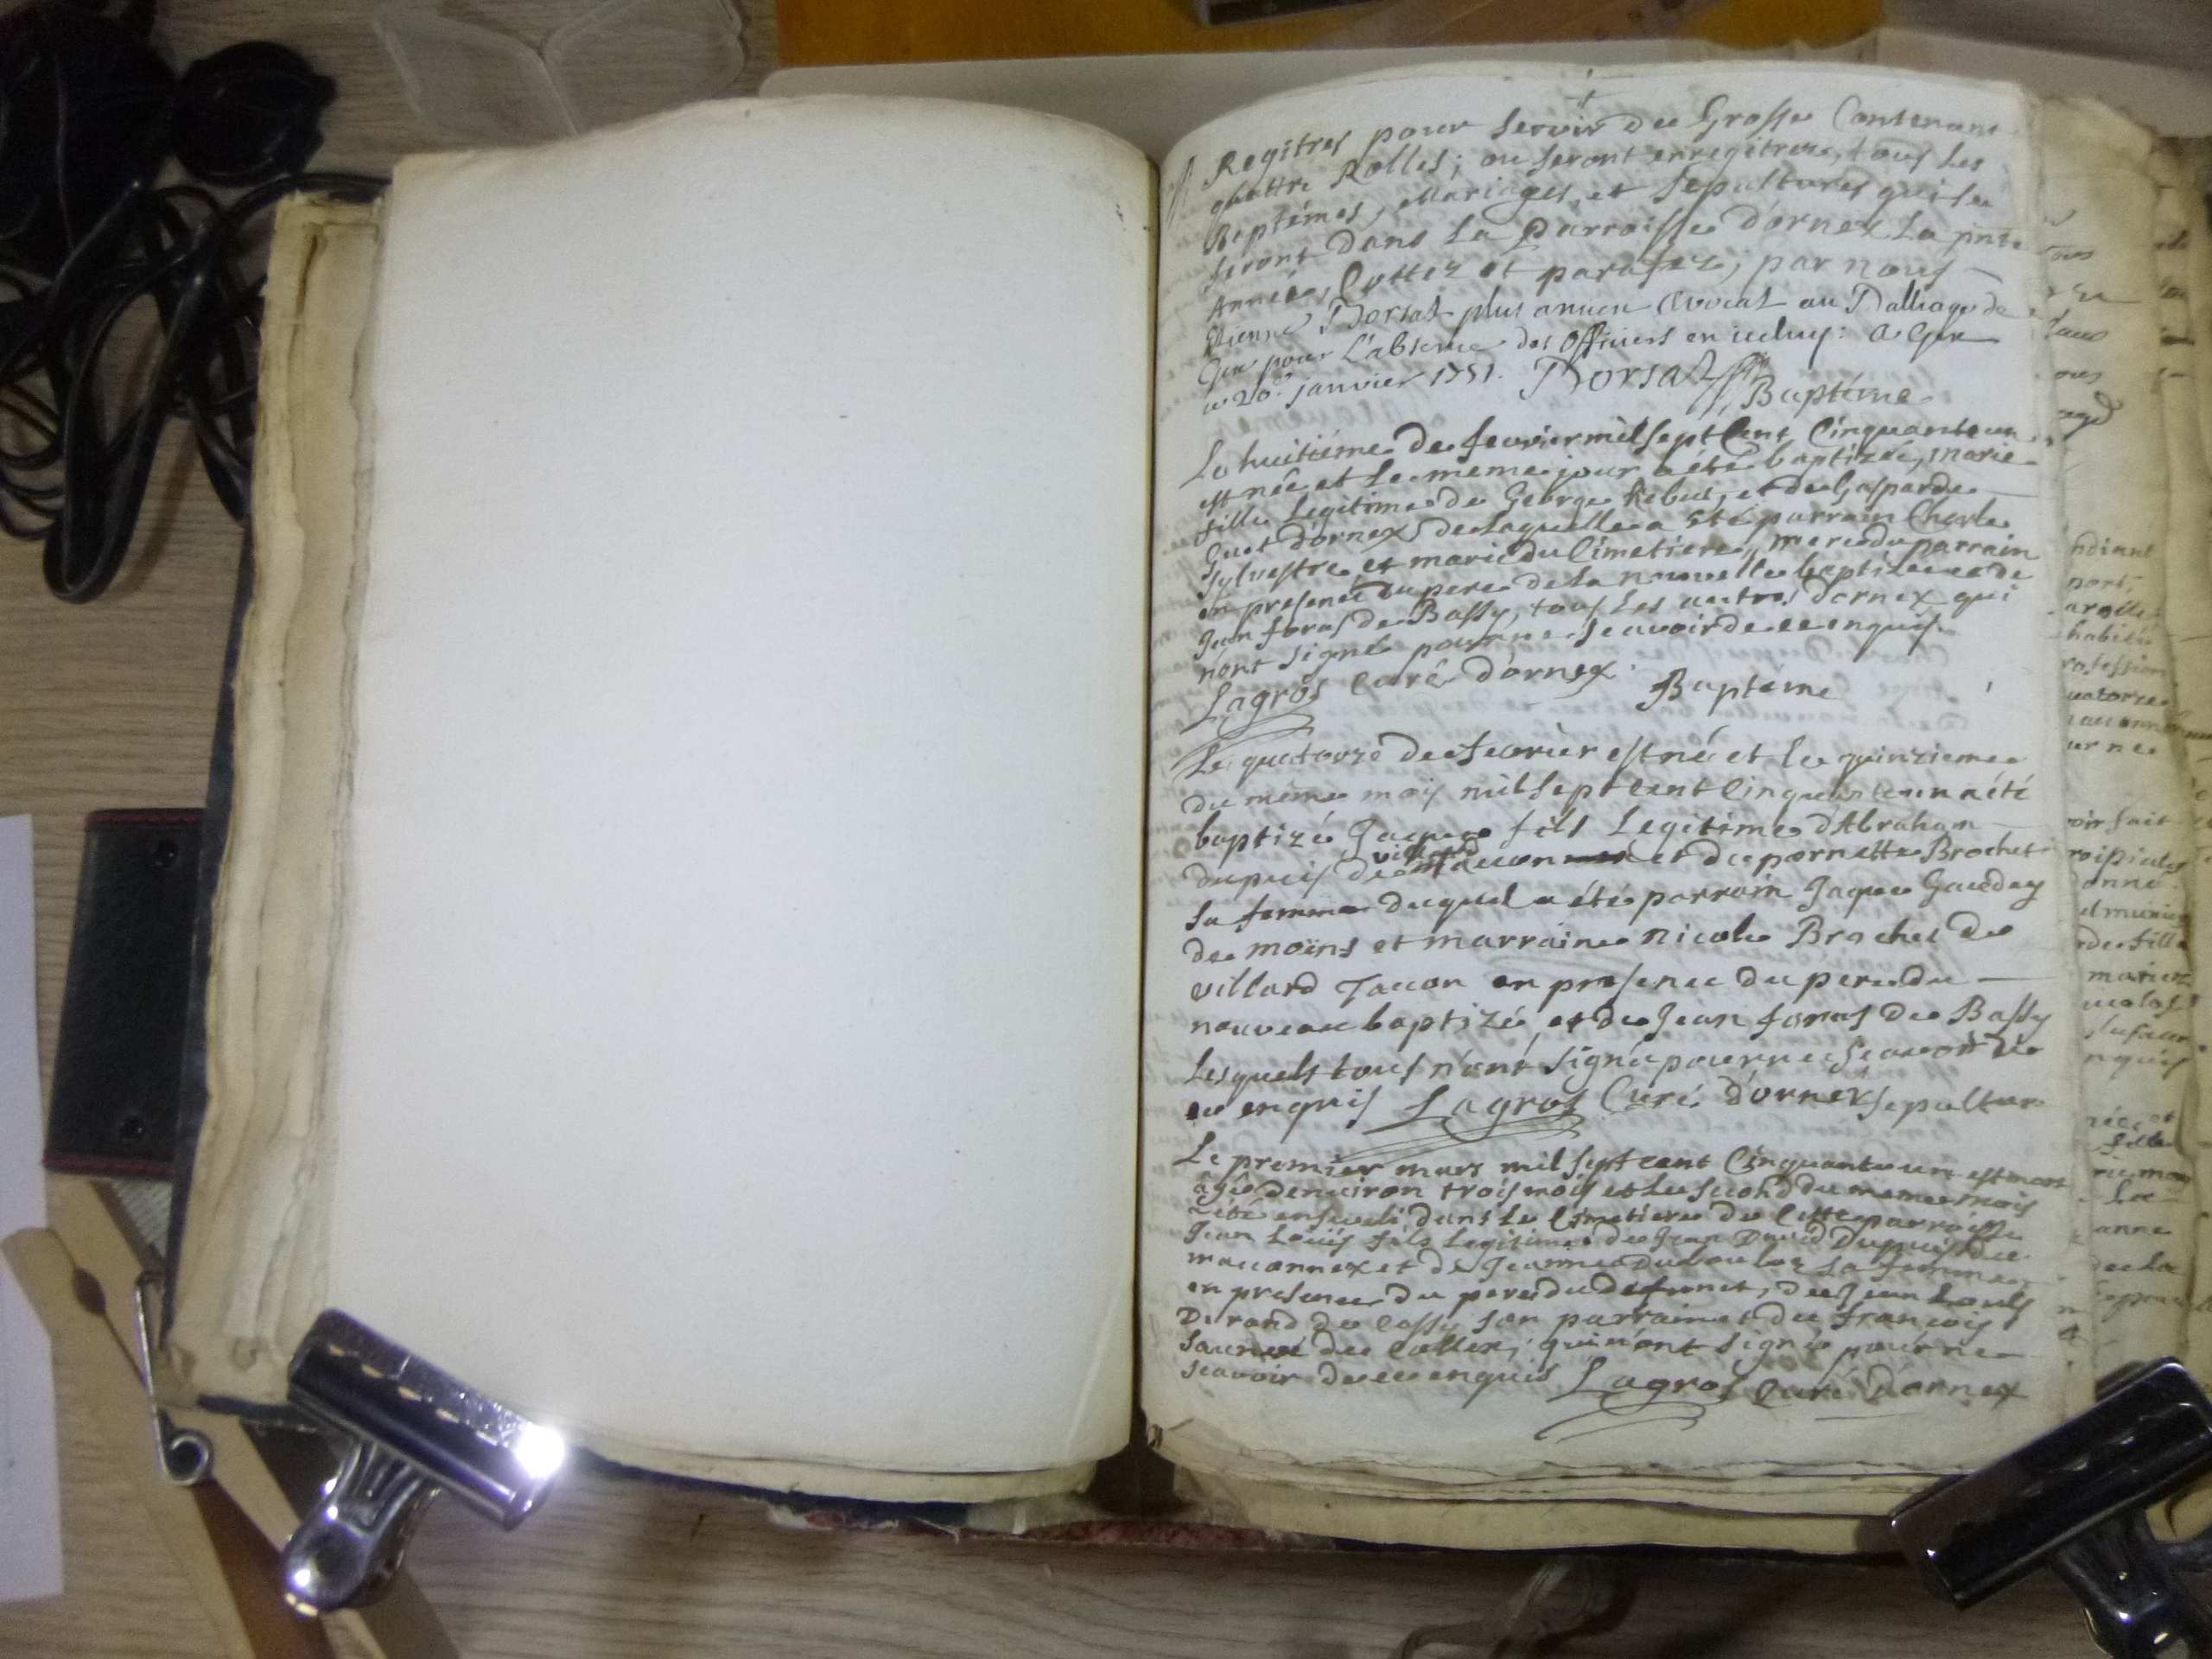 Registres pour servir de Grosse Contenant
quattre Rolles; ou seront enregitrez, tous les
Baptémes, Mariages, et sepultures qui se
feront dans La Parroisse d'ornex La pnte
Année, Cottez et parafez; par nous
Etienne Borsat plus ancien avocat au Balliage de
Gex pour L'absence des Officiers en iceluy: a Gex
ce 20e. janvier 1751. Borsat
Baptême
Le huitiéme de fevrier mil sept Cent Cinquante un
est née et le meme jour a été baptizée, marie
fille Legitime de George Rebut, et de Gasparde
Cuet d'ornex de laquelle a été parrain Charle
Sylvestre et marie du Cimetiere, mere du parrain
en presence du pere de la nouvelle baptizée et de
Jean foras de Bassy, tous les autres d'ornex qui
n'ont signé pour ne scavoir de ce enquis.
Lagros Curé d'ornex.
Baptême
Le quatorze de fevrier est né et le quinzieme
du même mois mil sept cent Cinquante un a été
baptizé Jaque fils Legitime d'Abraham
villard
dupuis de tacon et de pernette Brochet
sa femme duquel a été parrain Jaque Gaudey
de moëns et marraine Nicole Brochet de
villard Tacon en presence du pere du
nouveau baptizé, et de Jean foras de Bassy
Lesquels tous n'ont signé pour ne scavoir de
ce enquis Lagros Curé d'ornex
sepulture
Le premier mars mil sept cent Cinquante un est mort
âgé d'environ trois mois et le second du meme mois
a été enseveli dans le Cimetiere de Cette parroisse
Jean Louis fils Legitime de Jean David Dupuis de
maconnex et de Jeanne dubouloz sa femme
en presence du pere du defunct, de Jean Louis
Durand de Cassy son parrain et de françois
de Collex, qui n'ont signé pour ne
scavoir de ce enquis Lagros Curé d'ornex